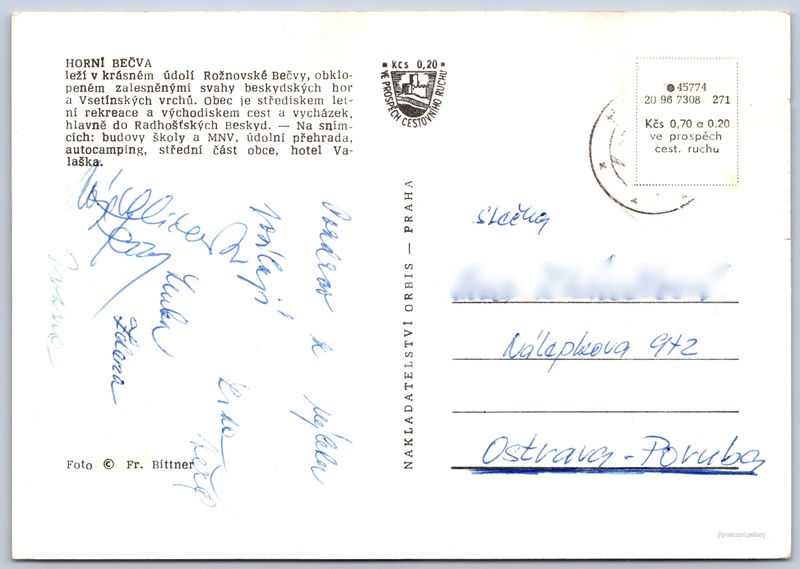 HORNÍ BEČVA
leží v krásném údolí Rožnovské Bečvy, obklo-
peném zalesněnými svahy beskydských hor
a Vsetínských vrchů. Obec je střediskem let-
ní rekreace a východiskem cest a vycházek,
hlavně do Radhošťských Beskyd. — Na sním-
cích: budovy školy a MNV, údolní přehrada,
autocamping, střední část obce, hotel Va-
laška.
Kčs 0,20
VE PROSPĚCH CESTOVNÍHO RUCHU
45774
20 96 7308 271
Kčs 0,70 a 0.20
ve prospěch
cest. ruchu
Pozdrav z výletu
posílají
Lenka
Zdena
Ivana
NAKLADATELSTVÍ ORBIS — PRAHA
slečna
Nálepkova 972
Ostrava-Poruba
Foto © Fr. Bittner